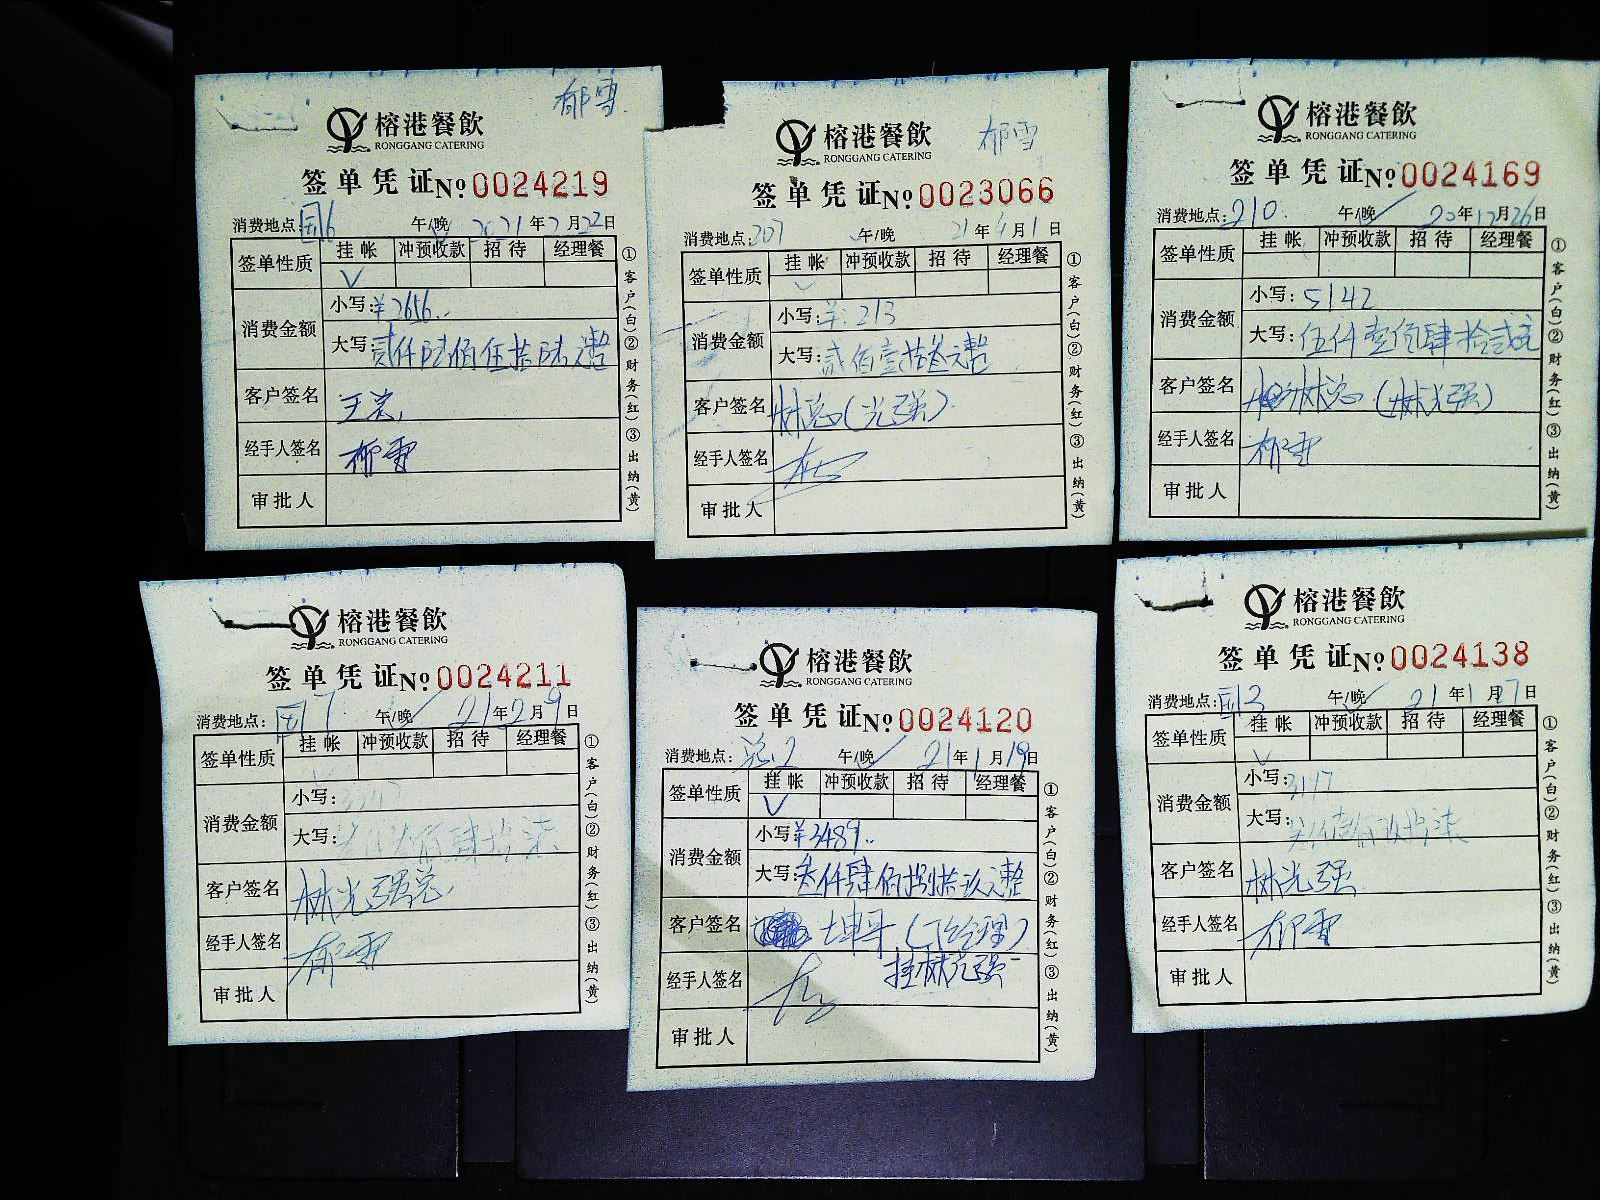 郁雪
榕港餐飲
RONGGANG CATERING
签单凭证№0024219
消费地点:国6 午/晚 2021年2月22日
签单性质 挂帐 冲预收款 招待 经理餐
√
消费金额 小写:¥2656..
大写:贰仟陆佰伍拾陆元整
客户签名 王总
经手人签名 郁雪
审批人
①客户(白)②财务(红)③出纳(黄)
郁雪
榕港餐飲
RONGGANG CATERING
签单凭证№0023066
消费地点:207 午/晚 21年4月1日
签单性质 挂帐 冲预收款 招待 经理餐
√
消费金额 小写:¥:213
大写:贰佰壹拾叁元整
客户签名 林总(光强)
经手人签名
审批人
①客户(白)②财务(红)③出纳(黄)
榕港餐飲
RONGGANG CATERING
签单凭证№0024169
消费地点:210. 午/晚 20年12月26日
签单性质 挂帐 冲预收款 招待 经理餐
消费金额 小写:5142
大写:伍仟壹佰肆拾贰元
客户签名 林总(林光强)
经手人签名 郁雪
审批人
①客户(白)②财务(红)③出纳(黄)
榕港餐飲
RONGGANG CATERING
签单凭证№0024211
消费地点:国7 午/晚 21年2月9日
签单性质 挂帐 冲预收款 招待 经理餐
消费金额 小写:
大写:
客户签名 林光强总
经手人签名 郁雪
审批人
①客户(白)②财务(红)③出纳(黄)
榕港餐飲
RONGGANG CATERING
签单凭证№0024120
消费地点:总2 午/晚 21年1月19日
签单性质 挂帐 冲预收款 招待 经理餐
√
消费金额 小写:¥3489..
大写:叁仟肆佰捌拾玖元整
客户签名 坤哥(丁经理)
挂林光强
经手人签名
审批人
①客户(白)②财务(红)③出纳(黄)
榕港餐飲
RONGGANG CATERING
签单凭证№0024138
消费地点:国3 午/晚 21年1月7日
签单性质 挂帐 冲预收款 招待 经理餐
√
消费金额 小写:3117
大写:
客户签名 林光强
经手人签名 郁雪
审批人
①客户(白)②财务(红)③出纳(黄)